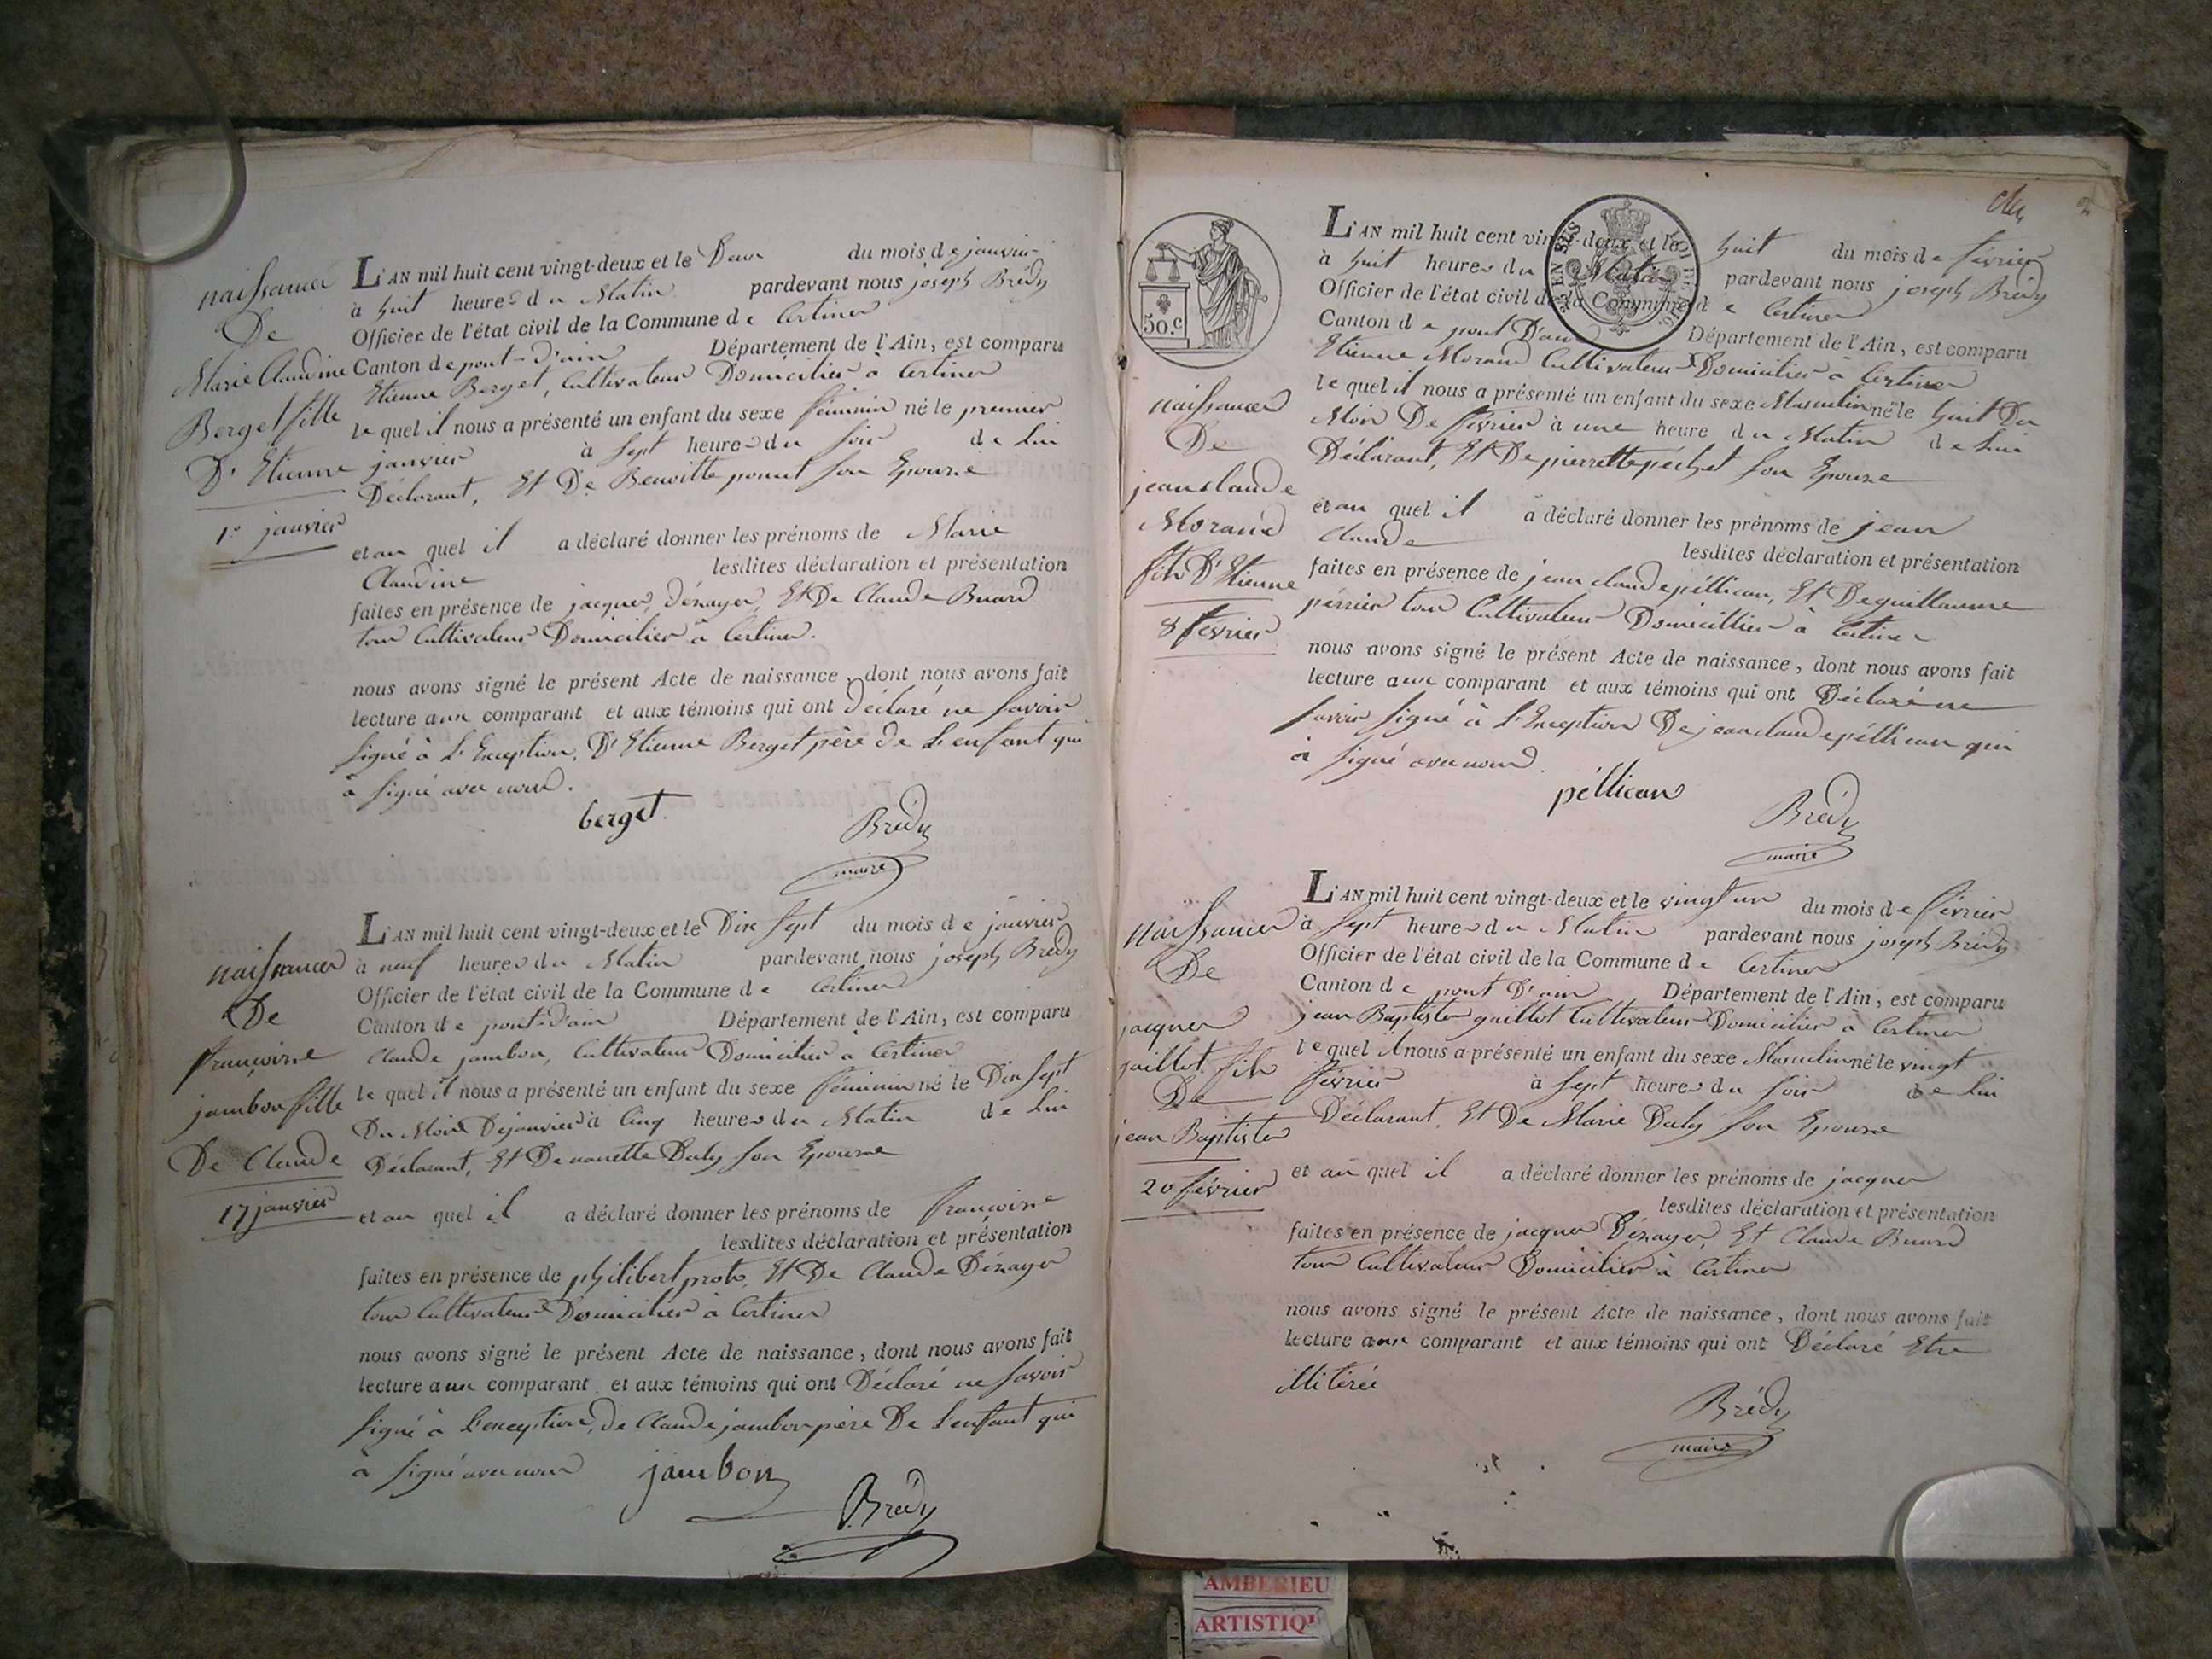 naissance
De
Marie Claudine
Berget fille
D'Etienne
1er janvier
L'AN mil huit cent vingt-deux et le Deux du mois de janvier
à huit heures du Matin pardevant nous joseph Brédy
Officier de l'état civil de la Commune de Certines
Canton de pont-d'ain Département de l'Ain, est comparu
Etienne Berget, Cultivateur Domicilier à Certines
lequel il nous a présenté un enfant du sexe féminin né le premier
janvier à sept heures du soir de Lui
Déclarant, Et De Benoitte son Epouse
et au quel il a déclaré donner les prénoms de Marie
Claudine lesdites déclaration et présentation
faites en présence de jacques Dénayer, Et De Claude Buard
tous Cultivateurs Domicilier à Certines.
nous avons signé le présent Acte de naissance, dont nous avons fait
lecture aux comparant et aux témoins qui ont Déclaré ne savoir
signé à L'Exception, D'Etienne Berget père de L'enfant qui
à signé avec nous.
berget Brédy
maire
naissance
De
françoise
jambon fille
De Claude
17 janvier
L'AN mil huit cent vingt-deux et le Dix sept du mois de janvier
à neuf heures du Matin pardevant nous joseph Brédy
Officier de l'état civil de la Commune de Certines
Canton de pont-d'ain Département de l'Ain, est comparu
Claude jambon, Cultivateur Domicilier à Certines
lequel il nous a présenté un enfant du sexe féminin né le Dix sept
Du Mois De janvier à Cinq heures du Matin de Lui
Déclarant, Et De nanette Duby son Epouse
et au quel il a déclaré donner les prénoms de françoise
lesdites déclaration et présentation
faites en présence de philibert prost, Et De Claude Dénayer
tous Cultivateurs Domicilier à Certines
nous avons signé le présent Acte de naissance, dont nous avons fait
lecture aux comparant et aux témoins qui ont Déclaré ne savoir
signé à L'exception, de Claude jambon père De L'enfant qui
à signé avec nous jambon
Brédy
50.c
naissance
De
jean claude
Morand
fils D'Etienne
8 février
L'AN mil huit cent vingt-deux et le huit du mois de février
à huit heures du Matin pardevant nous joseph Brédy
Officier de l'état civil de la Commune de Certines
Canton de pont D'ain Département de l'Ain, est comparu
Etienne Morand Cultivateur Domicilier à Certines
lequel il nous a présenté un enfant du sexe Masculin né le huit Du
Mois De février à une heure du Matin de Lui
Déclarant, Et De pierrette péchet son Epouse
et au quel il a déclaré donner les prénoms de jean
Claude lesdites déclaration et présentation
faites en présence de jean claude péllican, Et De guillaume
périer tous Cultivateurs Domicillier à Certines
nous avons signé le présent Acte de naissance, dont nous avons fait
lecture aux comparant et aux témoins qui ont Déclaré ne
savoir signé à L'Exception De jean claude péllican qui
à signé avec nous.
péllican Brédy
maire
naissance
De
jacques
guillot fils
De
jean Baptiste
20 février
L'AN mil huit cent vingt-deux et le vingt un du mois de février
à sept heures du Matin pardevant nous joseph Brédy
Officier de l'état civil de la Commune de Certines
Canton de pont D'ain Département de l'Ain, est comparu
jean Baptiste guillot Cultivateur Domicilier à Certines
lequel il nous a présenté un enfant du sexe Masculin né le vingt
février à sept heures du soir de Lui
Déclarant, Et De Marie Duby son Epouse
et au quel il a déclaré donner les prénoms de jacques
lesdites déclaration et présentation
faites en présence de jacques Dénayer, Et Claude Buard
tous Cultivateurs Domicilier à Certines
nous avons signé le présent Acte de naissance, dont nous avons fait
lecture aux comparant et aux témoins qui ont Déclaré Etre
illitérée
Brédy
maire
AMBERIEU
ARTISTIQU